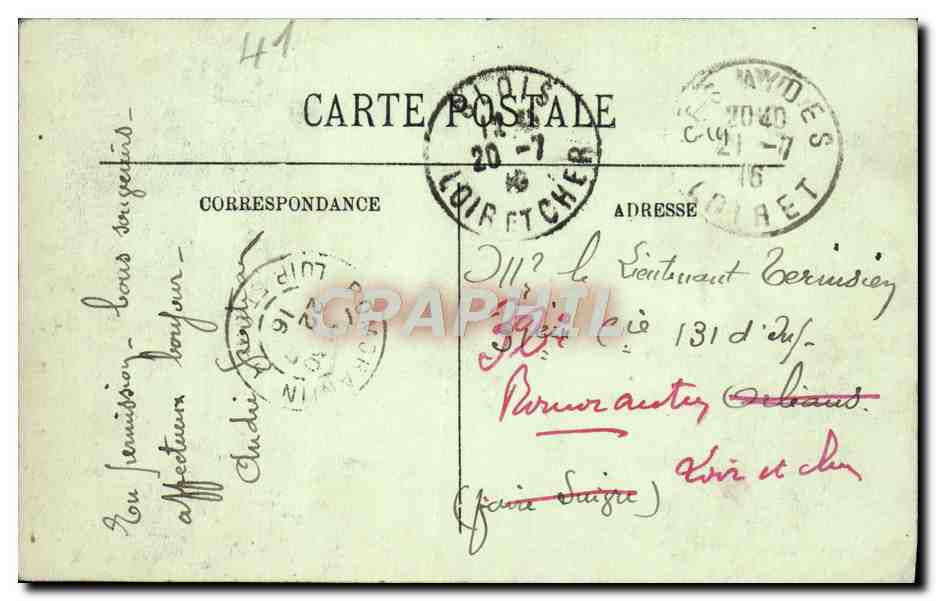 41
CARTE POSTALE
BLOIS
20 -7
16
LOIR ET CHER
AYDES
20 40
21 -7
16
LOIRET
CORRESPONDANCE
ADRESSE
En permission - bons souvenirs -
affectueux bonjour -
André
ROMORANTIN
22 - 7
16
LOIR ET
Mr le Lieutenant
Cie 131 d'Inf.
Romorantin Orléans.
Loir et Cher
(faire suivre)
CPAPHIL